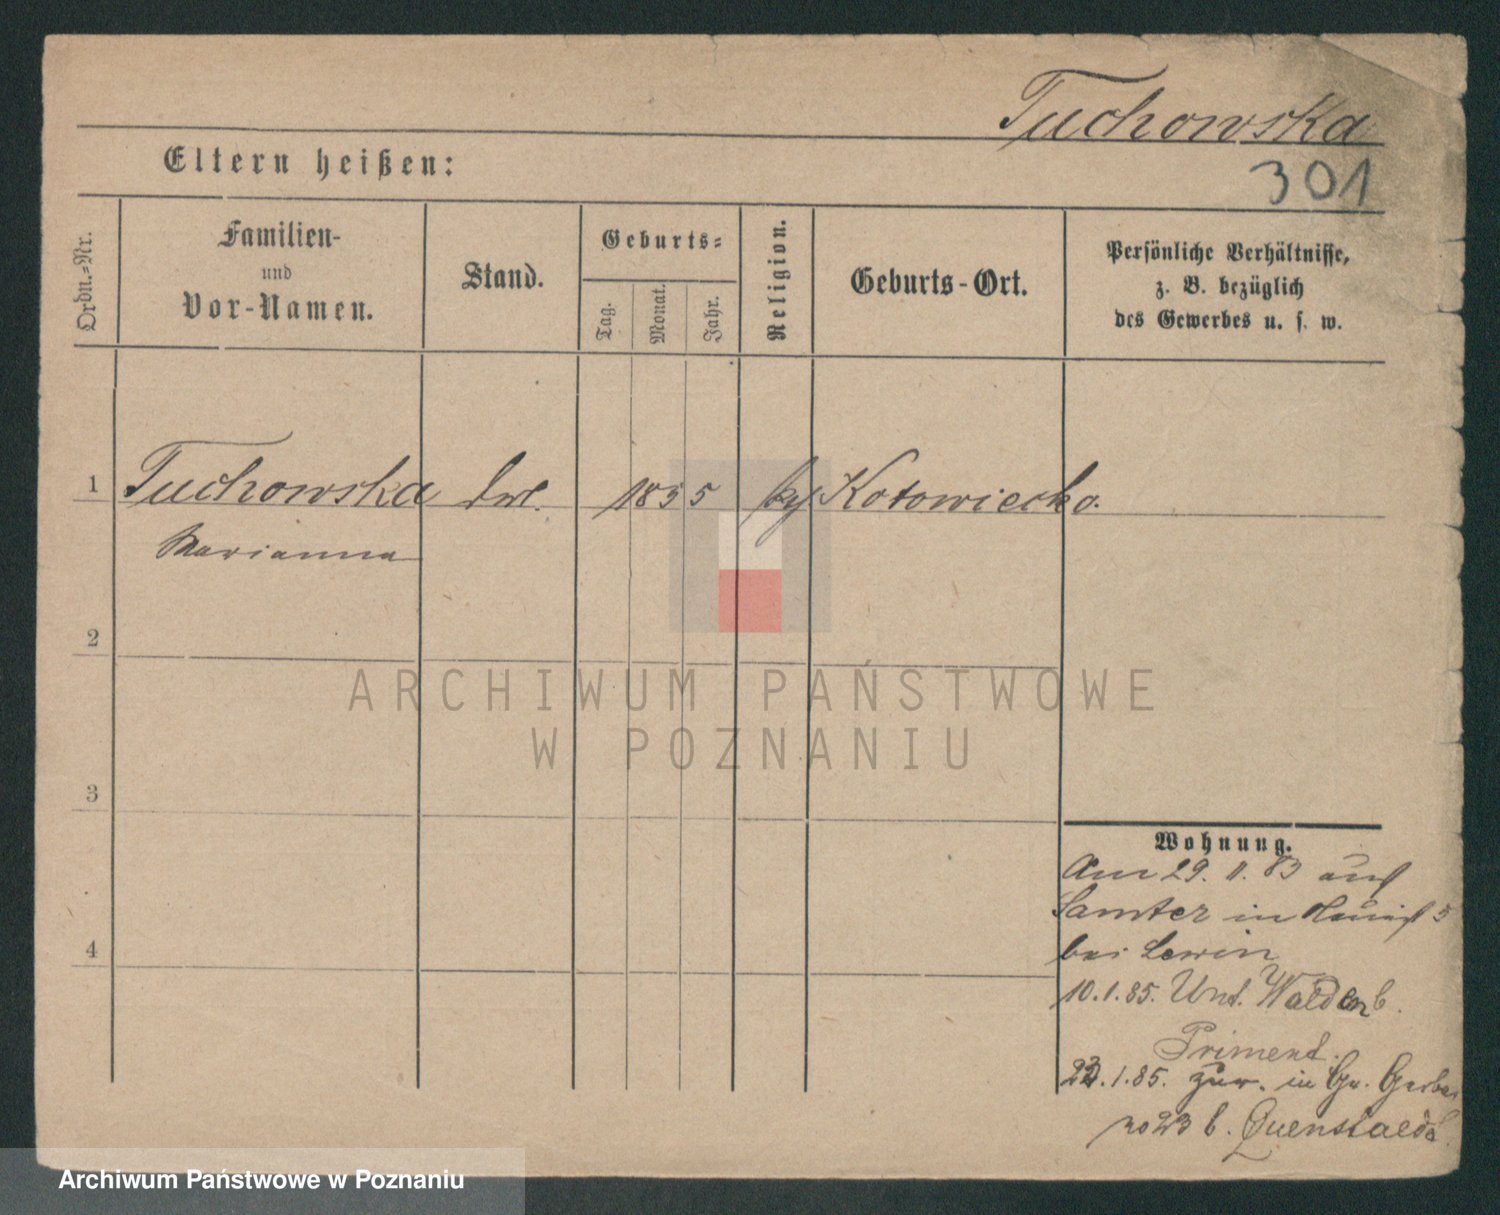 Tuchowska
301
Eltern heißen:
Ordn.=Nr.
Familien-
und
Vor-Namen.
Stand.
Geburts=
Tag.
Monat.
Jahr.
Religion.
Geburts-Ort.
Persönliche Verhältnisse,
z. B. bezüglich
des Gewerbes u. s. w.
1 Tuchowska 1855 Kotowiecko.
Marianna
2
3
4
ARCHIWUM PAŃSTWOWE
W POZNANIU
Wohnung.
Am 29. 11. 83 auf
Samter in 5
bei Lewin
10.1.85. Unt.
Priment.
1.85. zur. in Gr. Gerber
no 23 b.
Archiwum Państwowe w Poznaniu